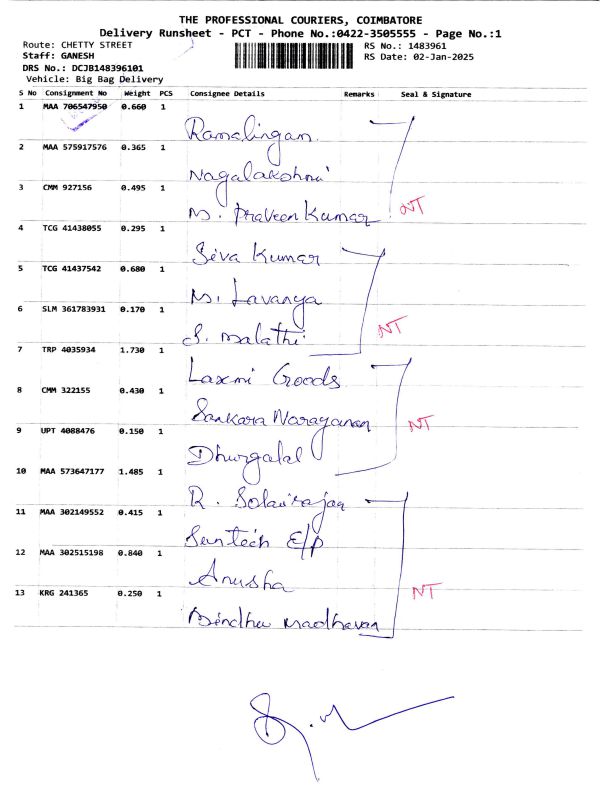 THE PROFESSIONAL COURIERS, COIMBATORE
Delivery Runsheet - PCT - Phone No.:0422-3505555 - Page No.:1
Route: CHETTY STREET RS No.: 1483961
Staff: GANESH RS Date: 02-Jan-2025
DRS No.: DCJB148396101
Vehicle: Big Bag Delivery
S No Consignment No Weight PCS Consignee Details Remarks Seal & Signature
1 MAA 706547950 0.660 1 Ramalingam
2 MAA 575917576 0.365 1 Nagalakshmi
3 CMM 927156 0.495 1 M. Praveen Kumar NT
4 TCG 41438055 0.295 1 Siva Kumar
5 TCG 41437542 0.680 1 M. Lavanya
6 SLM 361783931 0.170 1 S. Malathi NT
7 TRP 4035934 1.730 1 Laxmi Goods
8 CMM 322155 0.430 1 Sankara Narayanan NT
9 UPT 4088476 0.150 1 Dhurgalal
10 MAA 573647177 1.485 1 R. Solairajaa
11 MAA 302149552 0.415 1 Suntech E/P
12 MAA 302515198 0.840 1 Anusha NT
13 KRG 241365 0.250 1 Bindhu Madhavan